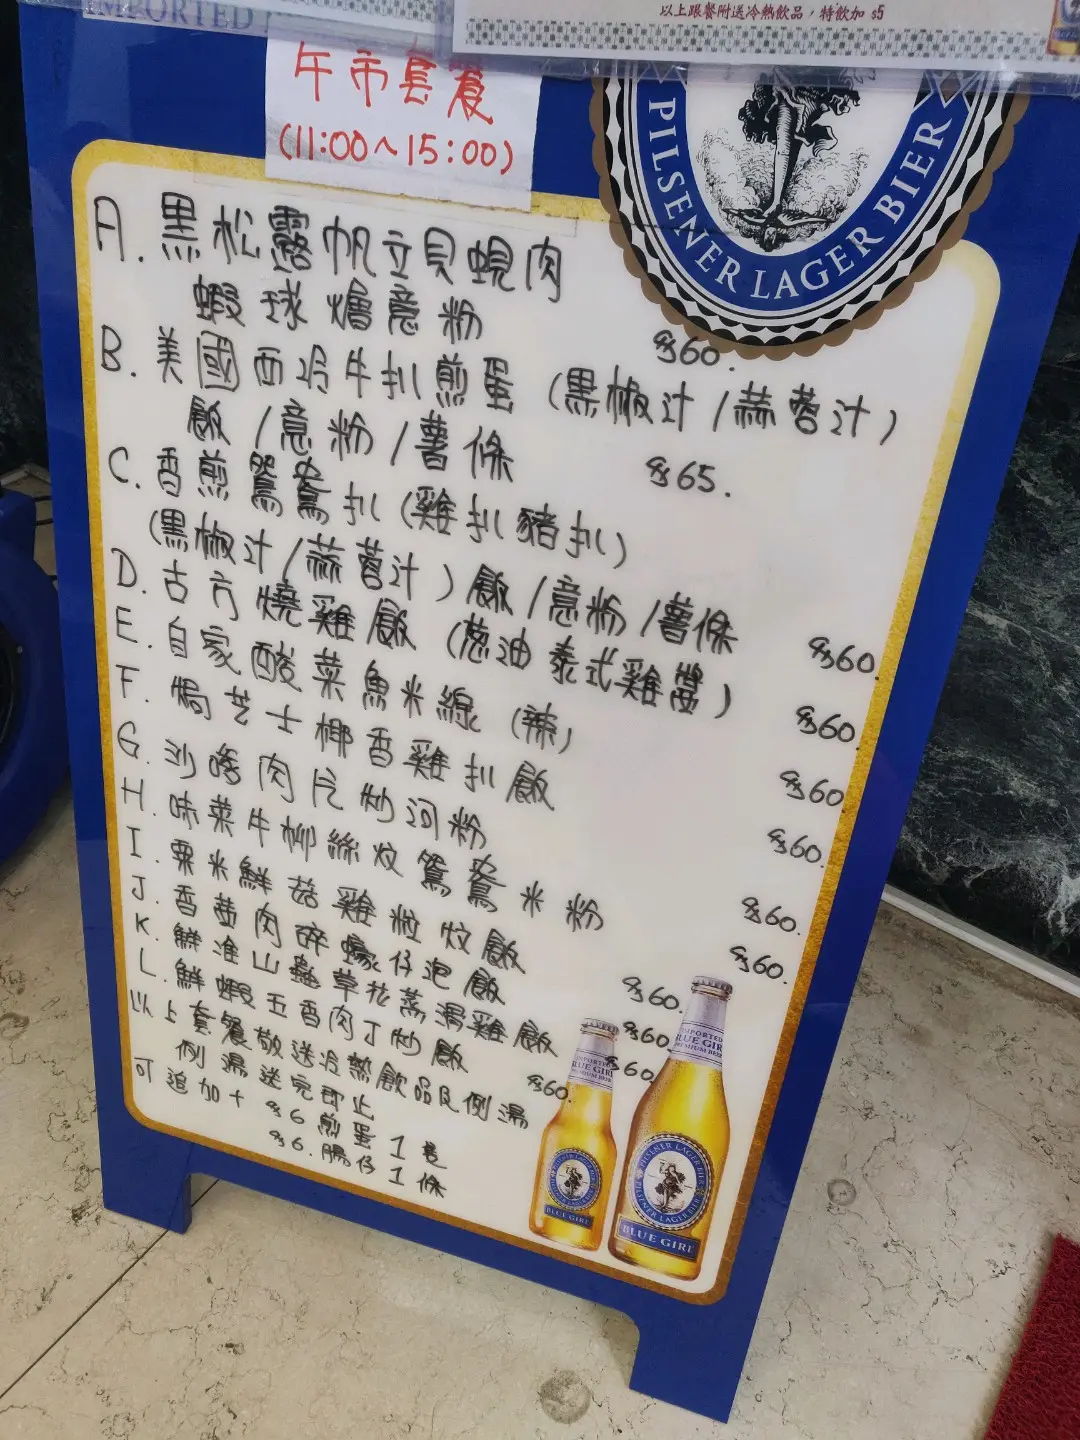 IMPORTED
以上跟餐附送冷熱飲品，特飲加 $5
午市套餐
(11:00~15:00)
PILSENER LAGER BIER
A. 黑松露帆立貝蜆肉
蝦球燴意粉 $60.
B. 美國西冷牛扒煎蛋 (黑椒汁/蒜蓉汁)
飯/意粉/薯條 $65.
C. 香煎鴛鴦扒 (雞扒豬扒)
(黑椒汁/蒜蓉汁) 飯/意粉/薯條 $60.
D. 古方燒雞飯 (葱油泰式雞醬) $60.
E. 自家酸菜魚米線 (辣) $60.
F. 焗芝士椰香雞扒飯 $60.
G. 沙嗲肉片炒河粉 $60.
H. 味菜牛柳絲炆鴛鴦米粉 $60.
I. 粟米鮮菇雞粒炆飯 $60.
J. 香茜肉碎蠔仔泡飯 $60.
K. 鮮淮山蟲草花蒸滑雞飯 $60.
L. 鮮蝦五香肉丁炒飯 $60.
以上套餐敬送冷熱飲品及例湯
例湯送完即止
可追加+ $6 煎蛋1隻
$6. 腸仔1條
IMPORTED
BLUE GIRL
PREMIUM BEER
PILSENER LAGER BIER
BLUE GIRL
IMPORTED
BLUE GIRL
BLUE GIRL